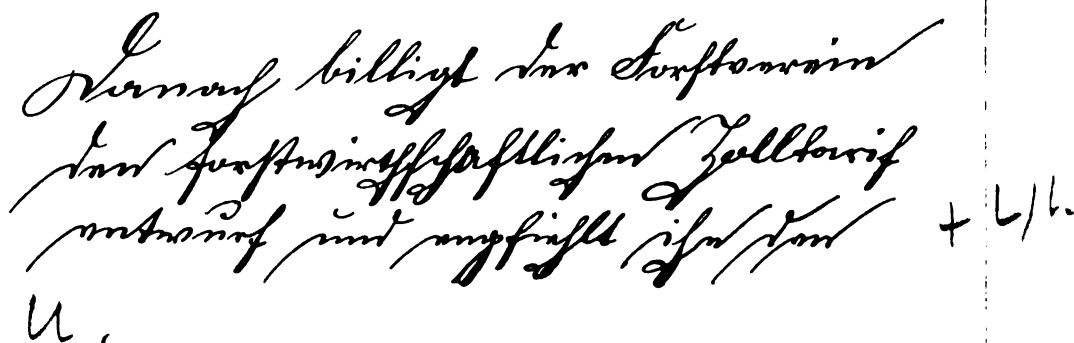 Danach billigt der Forstverein
den forstwirthschaftlichen Zolltarif
entwurf und empfiehlt ihn den